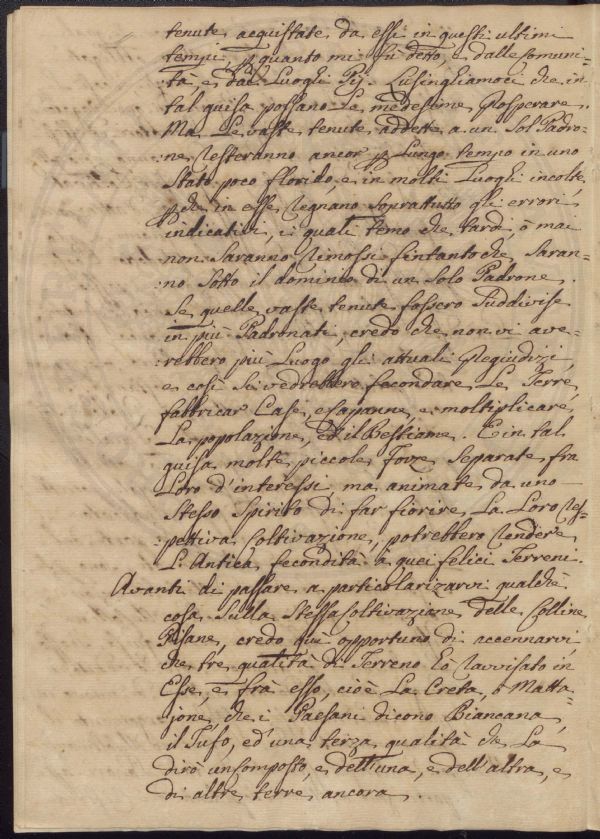 tenute acquistate da essi in questi ultimi
tempi, p quanto mi fu detto, e dalle comuni-
tà e dai Luoghi Pij. Lusinghiamoci che in
tal guisa possano le medesime prosperare.
Ma le vaste tenute addette a un sol Padro-
ne resteranno ancor p Lungo tempo in uno
Stato poco florido, e in molti Luoghi incolte,
pche in esse regnano soprattutto gli errori
indicativi, i quali temo che tardi, ò mai
non Saranno rimossi fintanto che Saran-
no Sotto il dominio di un Solo Padrone.
Se quelle vaste tenute fossero Suddivise
in più Padronati, credo che non vi ave-
rebbero più Luogo gli attuali Pregiudizi,
e così Si vedrebbero fecondare Le Terre,
fabbricar Case, e Capanne, e moltiplicare
La popolazione, ed il Bestiame. E in tal
guisa molte piccole forze Separate fra
Loro d'interessi, ma animate da uno
Stesso Spirito di far fiorire La Loro res-
pettiva Coltivazione, potrebbero rendere
L'Antica fecondità a quei felici Terreni.
Avanti di passare a particolarizarvi qualche
cosa Sulla Stessa Coltivazione delle Colline
Pisane, credo qui opportuno di accennarvi
che trè qualità di Terreno hò ravvisato in
Esse, e frà esso, cioè La Creta, ò Matta-
jone, che i Paesani dicono Biancana,
il Tufo, ed una terza qualità che La
dirò un Composto, e dell'una, e dell'altra, e
di altre terre ancora.